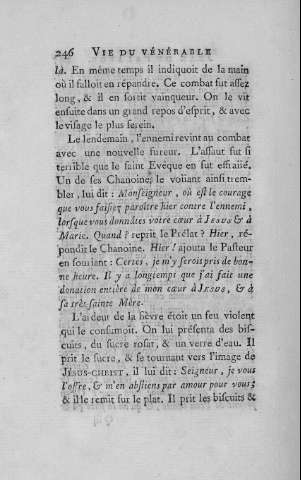 246 VIE DU VÉNÉRABLE
là. En même temps il indiquoit de la main
où il falloit en répandre. Ce combat fut assez
long, & il en sortit vainqueur. On le vit
ensuite dans un grand repos d'esprit, & avec
le visage le plus serein.
Le lendemain, l'ennemi revint au combat
avec une nouvelle fureur. L'assaut fut si
terrible que le saint Evêque en fut effraïé.
Un de ses Chanoines le voïant ainsi trem-
bler, lui dit : Monseigneur, où est le courage
que vous faisiez paroître hier contre l'ennemi,
lorsque vous donnâtes votre cœur à JESUS & à
Marie. Quand? reprit le Prélat? Hier, ré-
pondit le Chanoine. Hier! ajouta le Pasteur
en souriant : Certes, je m'y serois pris de bon-
ne heure. Il y a longtemps que j'ai fait une
donation entiere de mon cœur à JESUS, & à
sa très-sainte Mère.
L'ardeur de la fièvre étoit un feu violent
qui le consumoit. On lui présenta des bis-
cuits, du sucre rosat, & un verre d'eau. Il
prit le sucre, & se tournant vers l'image de
JÉSUS-CHRIST, il lui dit : Seigneur, je vous
l'offre, & m'en abstiens par amour pour vous;
& il le remit sur le plat. Il prit les biscuits &